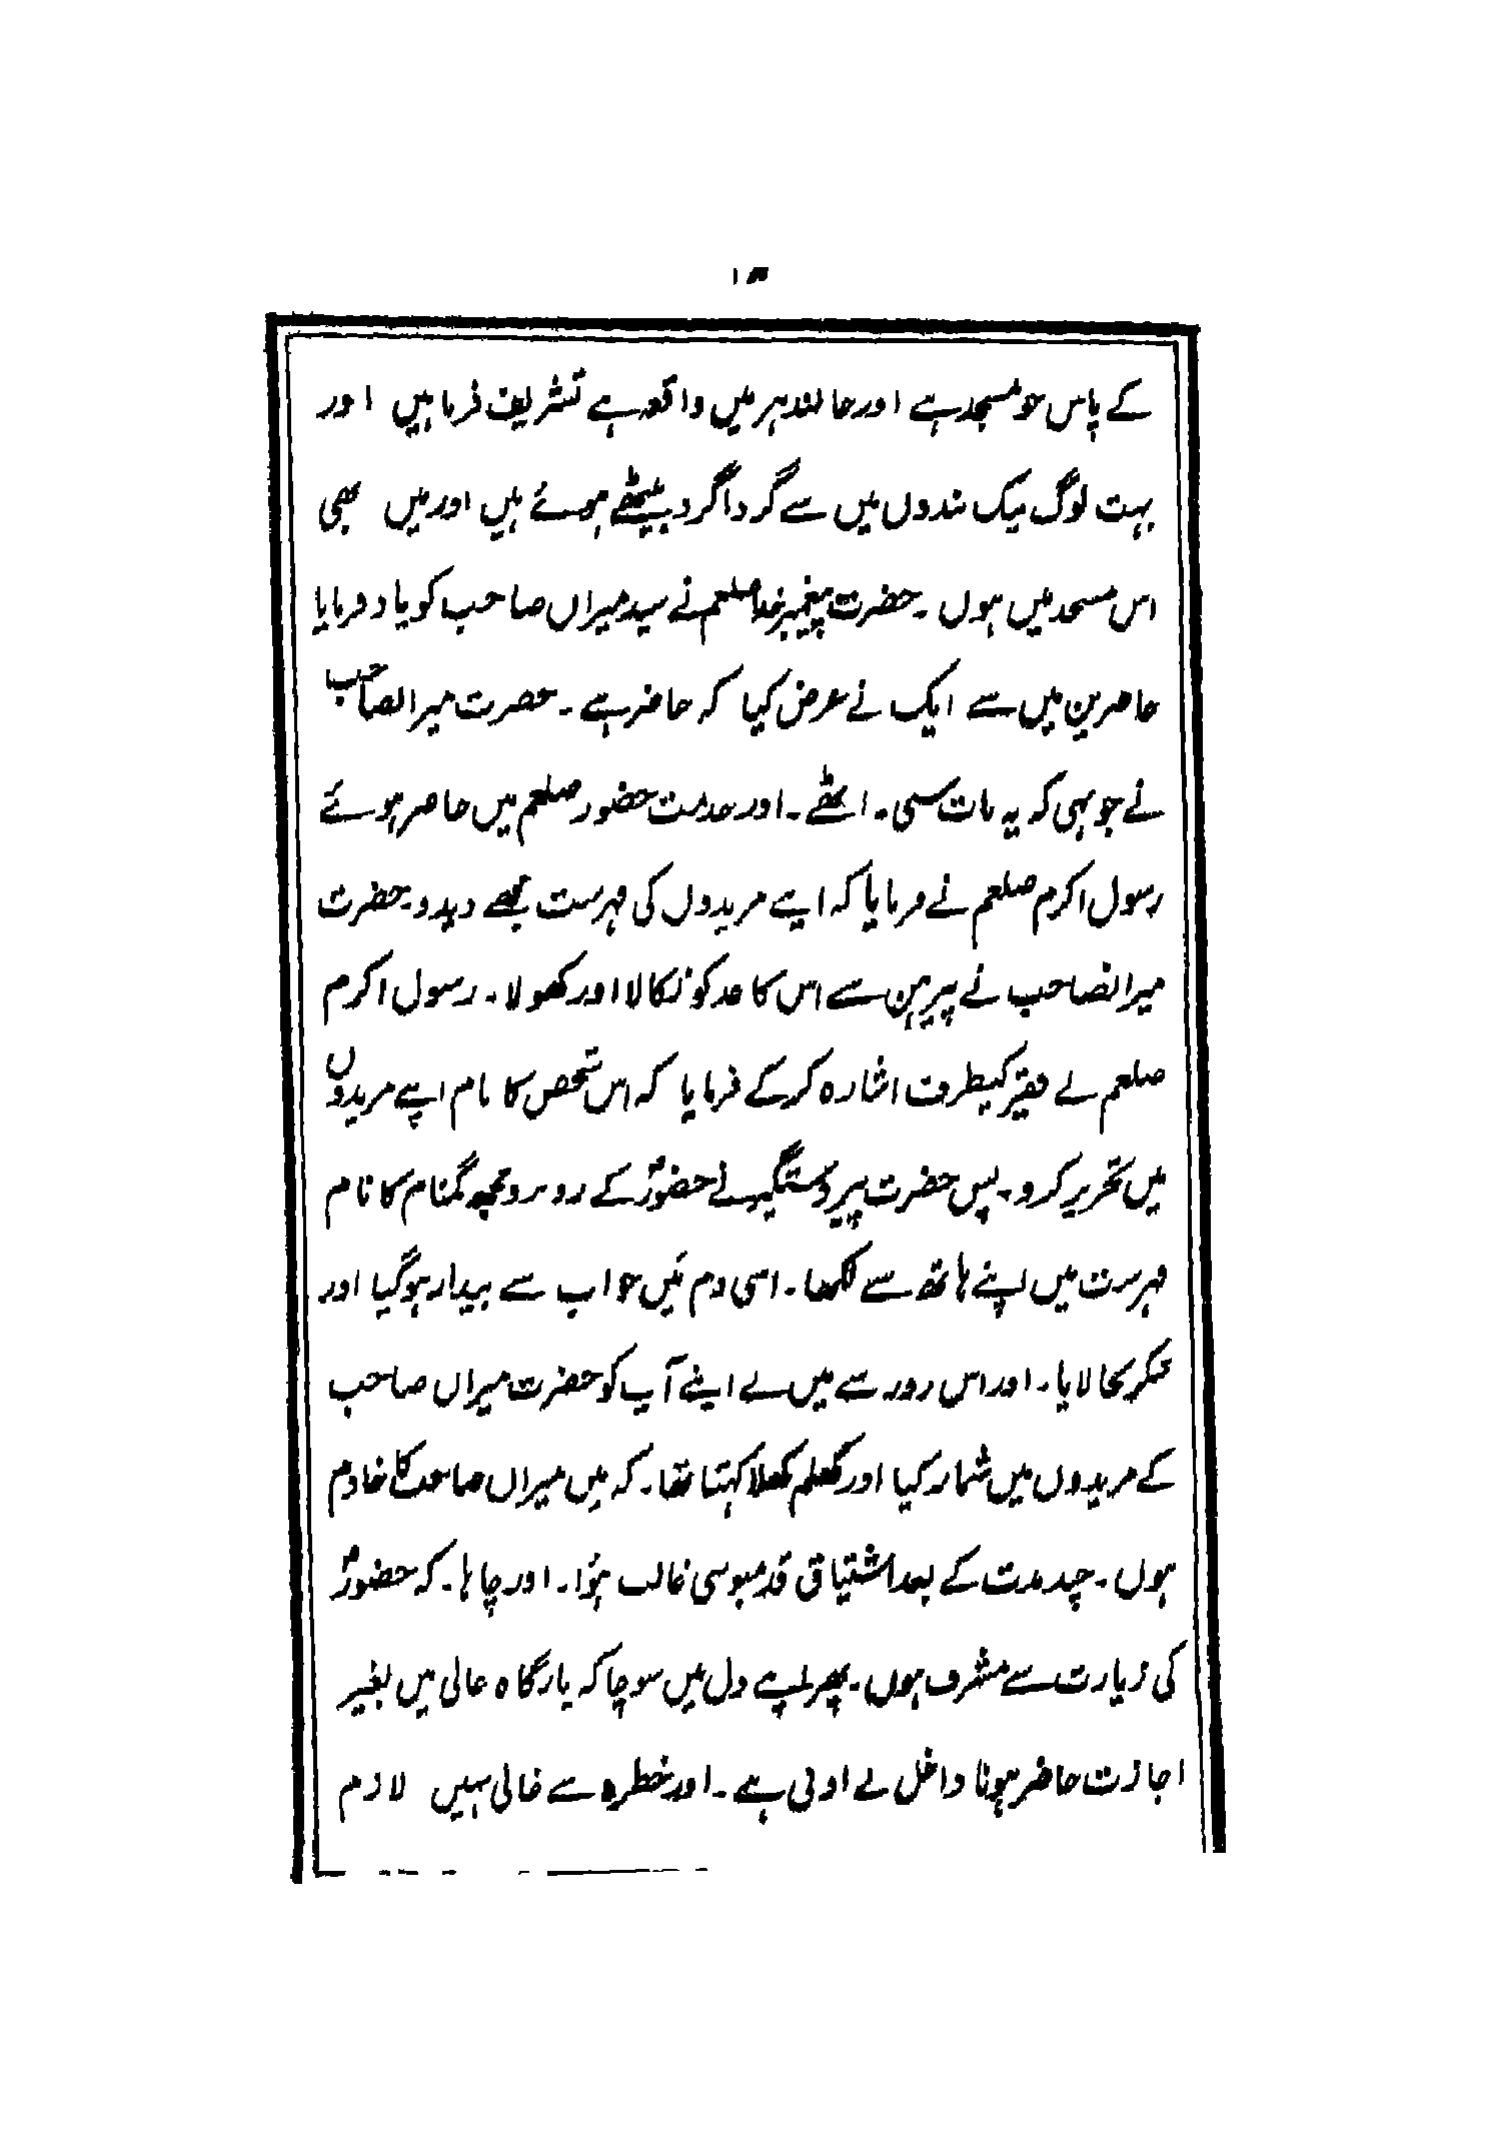 کے پاس جو مسجد ہے اور جالندہر میں واقعہ ہے تشریف فرما ہیں اور
بہت لوگ نیک بندوں میں سے گرداگرد بیٹھے ہوئے ہیں اور میں بھی
اس مسجد میں ہوں۔ حضرت پیغمبر خدا صلعم نے سید میراں صاحب کو یاد فرمایا
حاضرین میں سے ایک نے عرض کیا کہ حاضر ہے۔ حضرت میرانصاحب
نے جوہی کہ یہ بات سنی۔ اٹھے۔ اور خدمت حضور صلعم میں حاضر ہوئے
رسول اکرم صلعم نے فرمایا کہ اپنے مریدوں کی فہرست مجھے دیدو۔ حضرت
میرانصاحب نے پیرہن سے اس کاغذ کو نکالا اور کھولا۔ رسول اکرم
صلعم نے فقیر کیطرف اشارہ کر کے فرمایا کہ اس شخص کا نام اپنے مریدوں
میں تحریر کرو۔ پس حضرت پیر دستگیر نے حضورؐ کے روبرو مجھ گمنام کا نام
فہرست میں اپنے ہاتھ سے لکھا۔ اسی دم میں خواب سے بیدار ہو گیا اور
شکر بجا لایا۔ اور اس روز سے میں نے اپنے آپ کو حضرت میراں صاحب
کے مریدوں میں شمار کیا اور کھلم کھلا کہتا تھا۔ کہ میں میراں صاحب کا خادم
ہوں۔ چند مدت کے بعد اشتیاق قدمبوسی غالب ہؤا۔ اور چاہا۔ کہ حضورؐ
کی زیارت سے مشرف ہوں۔ پھر اپنے دل میں سوچا کہ بارگاہ عالی میں بغیر
اجازت حاضر ہونا داخل بے ادبی ہے۔ اور خطرہ سے خالی نہیں لازم